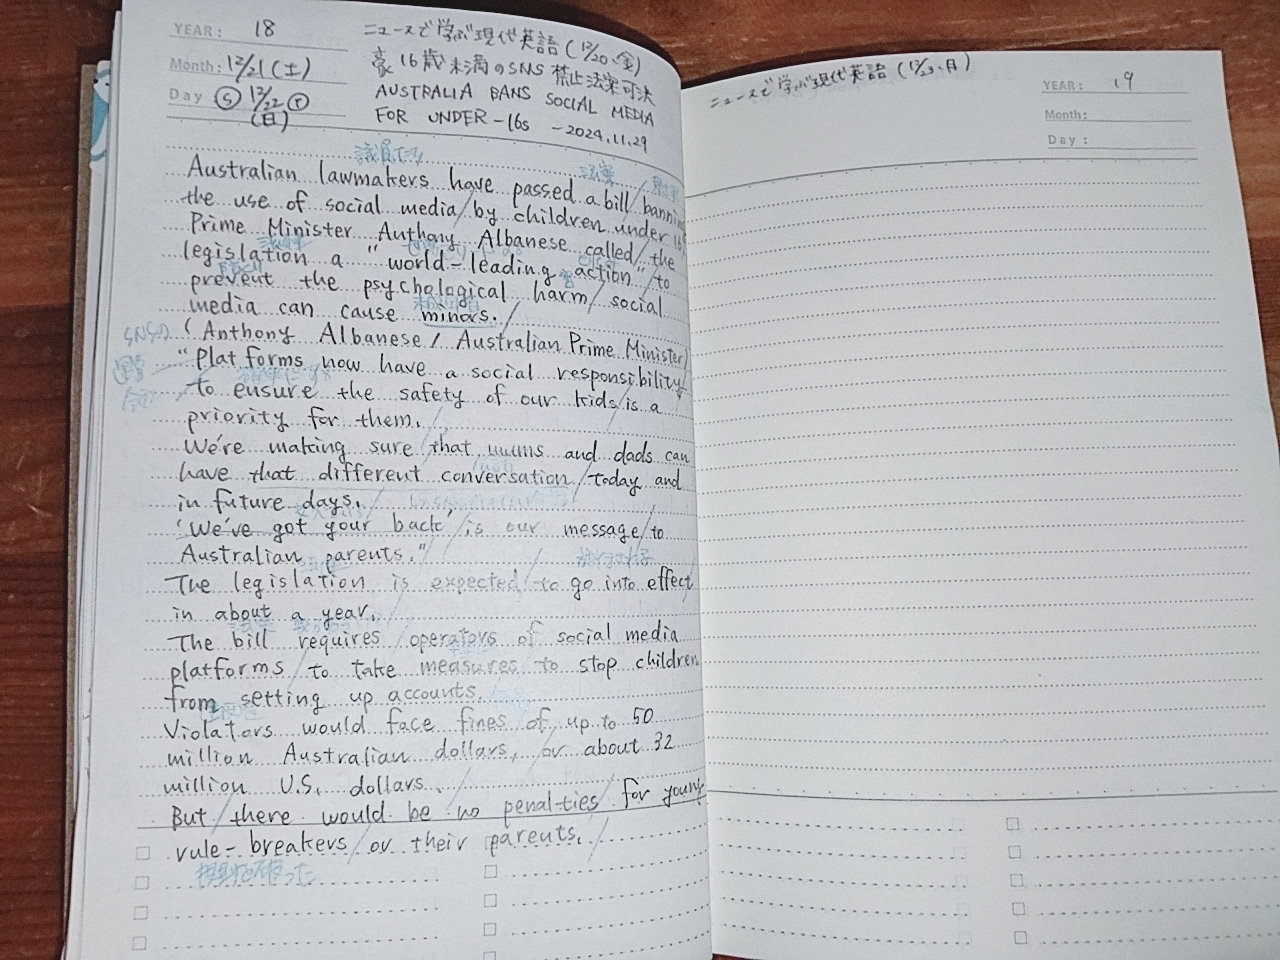 YEAR: 18
Month: 12/21(土)
Day Ⓢ 12/22
(日)
ニュースで学ぶ現代英語(12/20、金)
豪16歳未満のSNS禁止法案可決
AUSTRALIA BANS SOCIAL MEDIA
FOR UNDER-16s -2024.11.29
議員たち
法案
Australian lawmakers have passed a bill/banning
the use of social media/by children under 16/
Prime Minister Anthony Albanese called/the
legislation a "world-leading action"/to
prevent the psychological harm/social
media can cause minors./
(Anthony Albanese/Australian Prime Minister)
"Platforms now have a social responsibility/
to ensure the safety of our kids/is a
priority for them./
We're making sure/that mums and dads can
have that different conversation/today and
in future days./
'We've got your back,'/is our message/to
Australian parents."/
施行される
The legislation is expected/to go into effect
in about a year./
The bill requires/operators of social media
platforms/to take measures/to stop children
from setting up accounts.
Violators would face fines/of up to 50
million Australian dollars,/or about 32
million U.S. dollars./
But/there would be no penalties/for young
rule-breakers/or their parents./
ニュースで学ぶ現代英語(12/23、月)
YEAR: 19
Month:
Day: